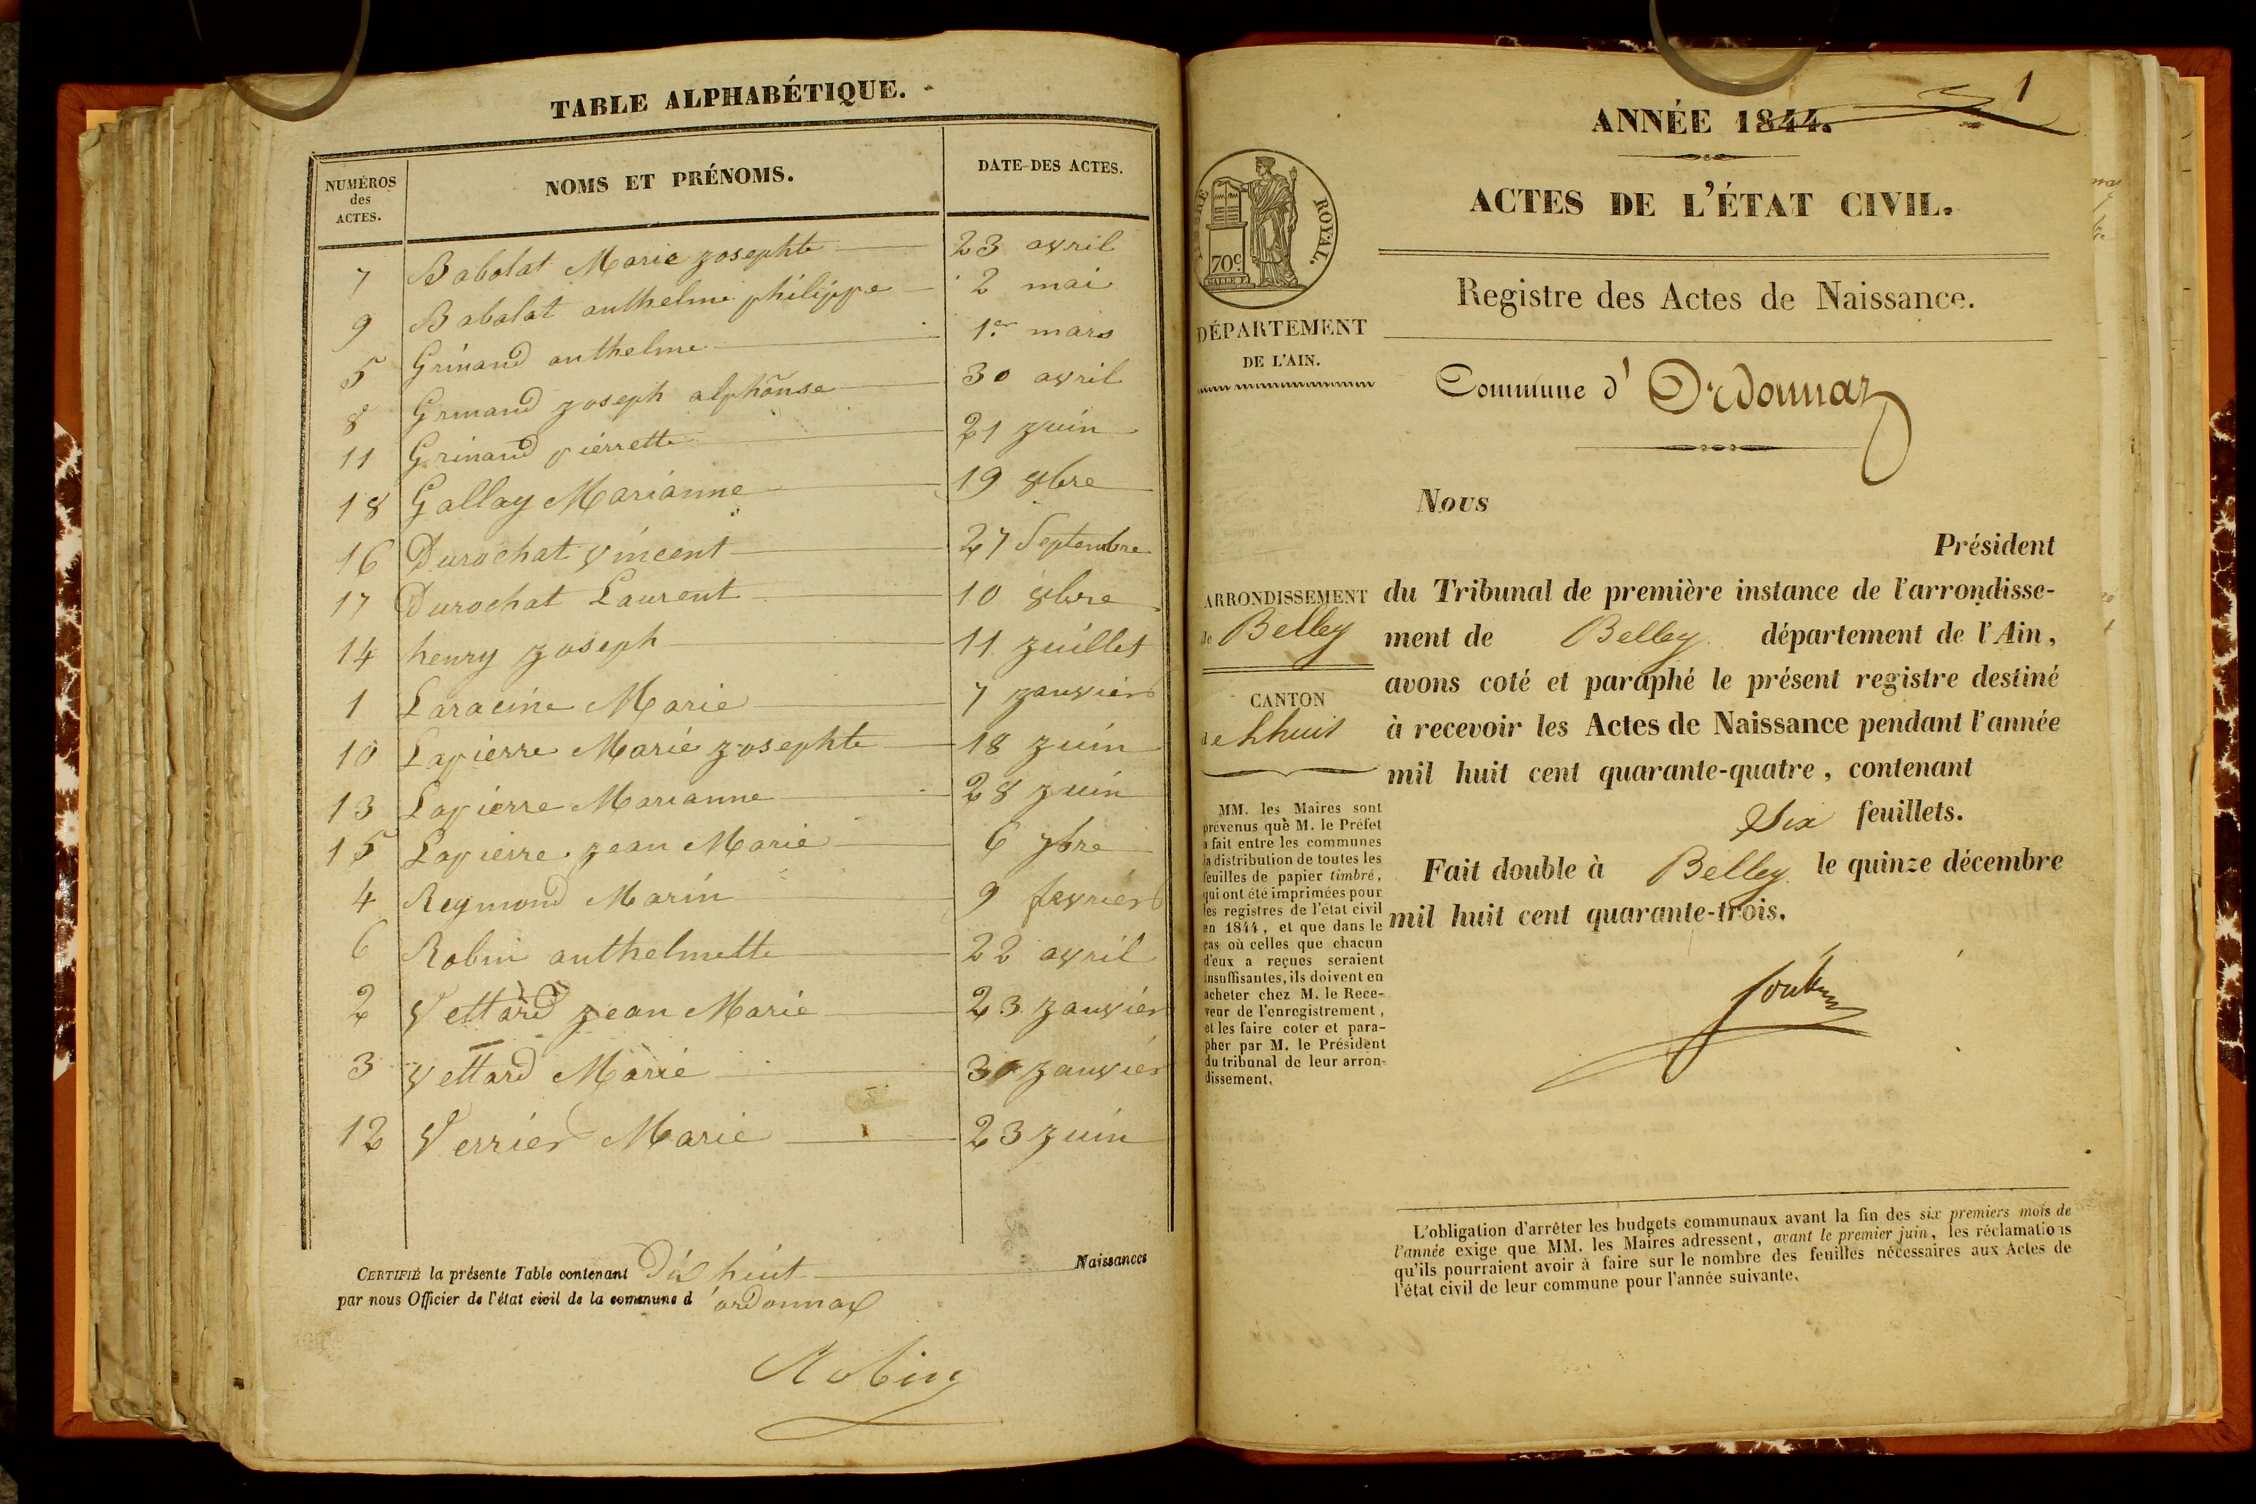 TABLE ALPHABÉTIQUE.
NUMÉROS des ACTES. NOMS ET PRÉNOMS. DATE DES ACTES.
7 Babolat Marie Josephte 23 avril
9 Babolat anthelme philippe 2 mai
5 Grinand anthelme 1er mars
8 Grinand joseph alphonse 30 avril
11 Grinand pierrette 21 juin
18 Gallay Marianne 19 8bre
16 Durochat vincent 27 Septembre
17 Durochat Laurent 10 8bre
14 henry joseph 11 juillet
1 Laracine Marie 7 janvier
10 Lapierre Marie josephte 18 juin
13 Lapierre Marianne 28 juin
15 Lapierre jean Marie 6 7bre
4 Reymond Marin 9 fevrier
6 Robin anthelmette 22 avril
2 Vettard jean Marie 23 janvier
3 Vettard Marie 30 janvier
12 Verrier Marie 23 juin
CERTIFIÉ la présente Table contenant Dix huit Naissances
par nous Officier de l'état civil de la commune d'ordonnax
Robin
1
ANNÉE 1844.
ACTES DE L'ÉTAT CIVIL.
ROYAL.
70c
Registre des Actes de Naissance.
DÉPARTEMENT
DE L'AIN.
Commune d' Ordonnaz
Nous
Président
du Tribunal de première instance de l'arrondisse-
ment de Belley département de l'Ain,
avons coté et paraphé le présent registre destiné
à recevoir les Actes de Naissance pendant l'année
mil huit cent quarante-quatre, contenant
Six feuillets.
Fait double à Belley le quinze décembre
mil huit cent quarante-trois.
ARRONDISSEMENT
de Belley
CANTON
de Lhuis
MM. les Maires sont
prévenus que M. le Préfet
a fait entre les communes
la distribution de toutes les
feuilles de papier timbré,
qui ont été imprimées pour
les registres de l'état civil
en 1844, et que dans le
cas où celles que chacun
d'eux a reçues seraient
insuffisantes, ils doivent en
acheter chez M. le Rece-
veur de l'enregistrement,
et les faire coter et para-
pher par M. le Président
du tribunal de leur arron-
dissement.
L'obligation d'arrêter les budgets communaux avant la fin des six premiers mois de
l'année exige que MM. les Maires adressent, avant le premier juin, les réclamations
qu'ils pourraient avoir à faire sur le nombre des feuilles nécessaires aux Actes de
l'état civil de leur commune pour l'année suivante.